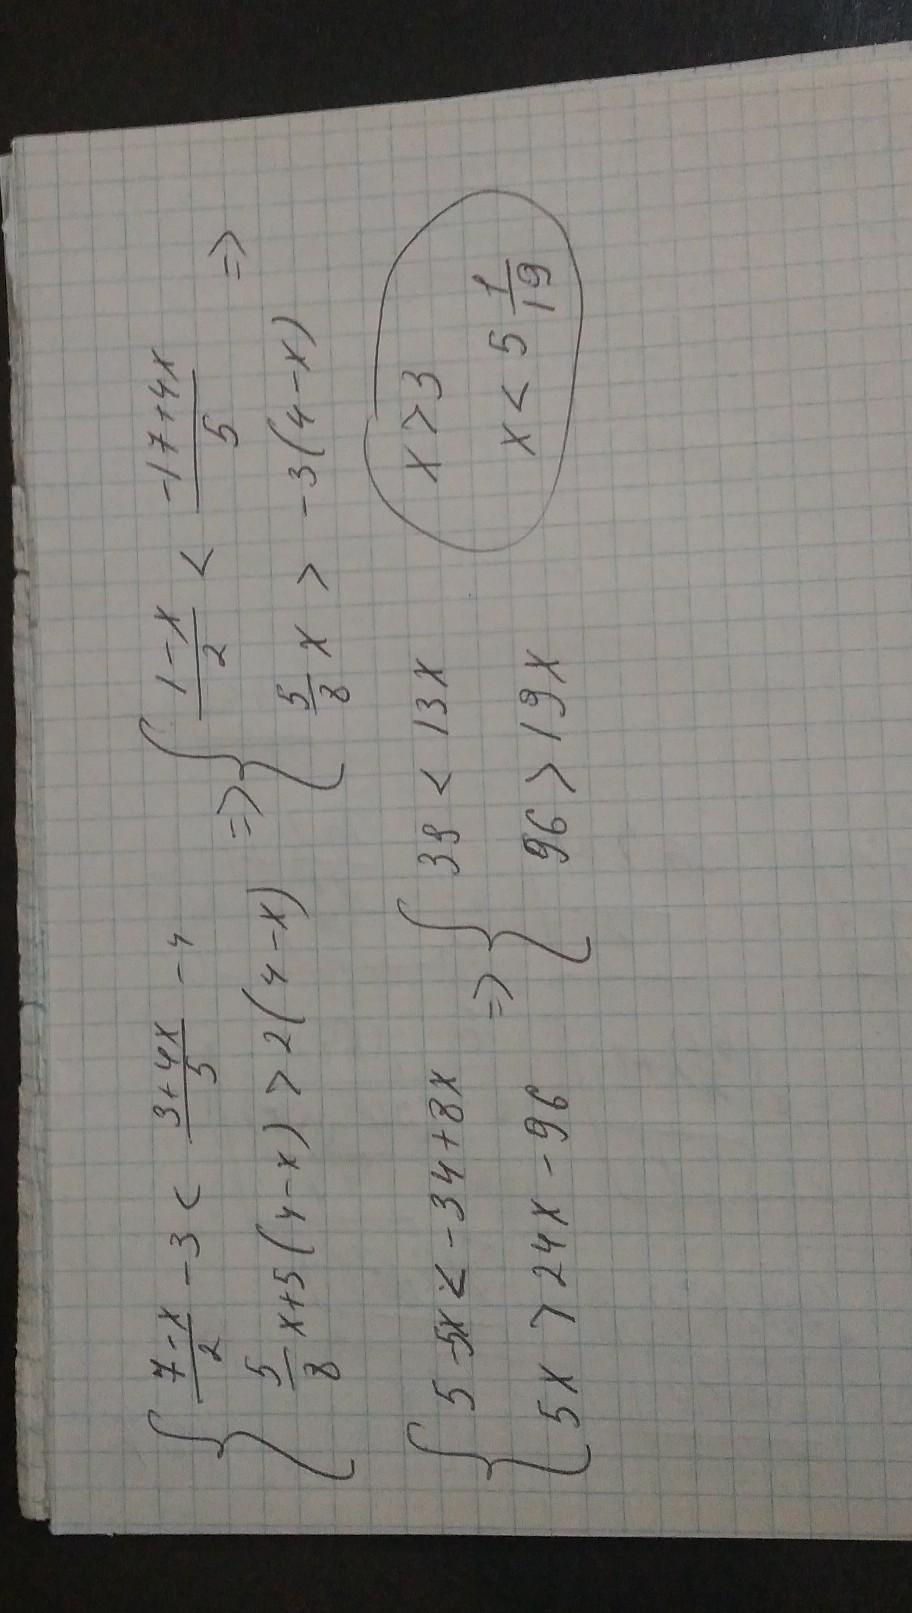 { (7-x)/2 - 3 < (3+4x)/5 - 4
5/8 x + 5(4-x) > 2(4-x)
=> { (1-x)/2 < (-17+4x)/5 =>
5/8 x > -3(4-x)
{ 5-5x < -34+8x
5x > 24x - 96
=> { 39 < 13x
96 > 19x
x > 3
x < 5 1/19